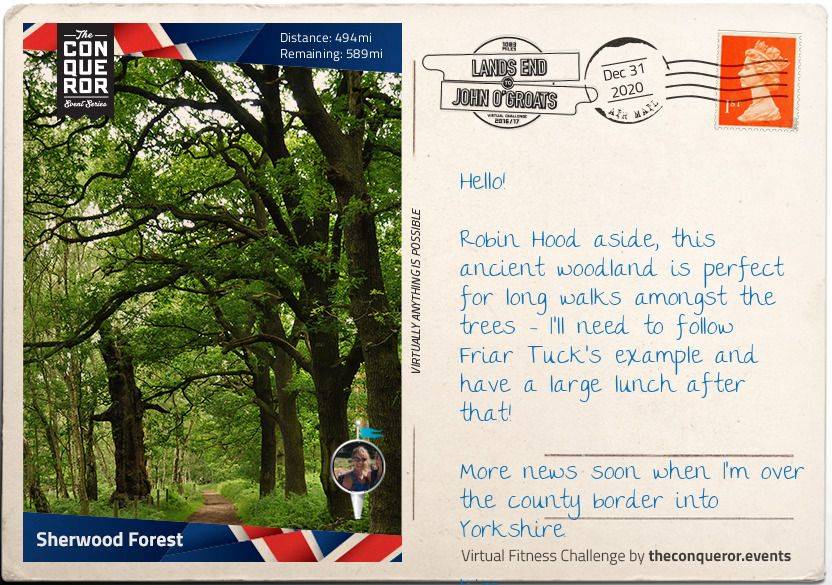 The
CON
QUE
ROR
Event Series
Distance: 494mi
Remaining: 589mi
Sherwood Forest
VIRTUALLY ANYTHING IS POSSIBLE
1083
MILES
LANDS END
TO
JOHN O'GROATS
VIRTUAL CHALLENGE
2016/17
Dec 31
2020
AIR MAIL
1ST
Hello!
Robin Hood aside, this
ancient woodland is perfect
for long walks amongst the
trees - I'll need to follow
Friar Tuck's example and
have a large lunch after
that!
More news soon when I'm over
the county border into
Yorkshire
Virtual Fitness Challenge by theconqueror.events